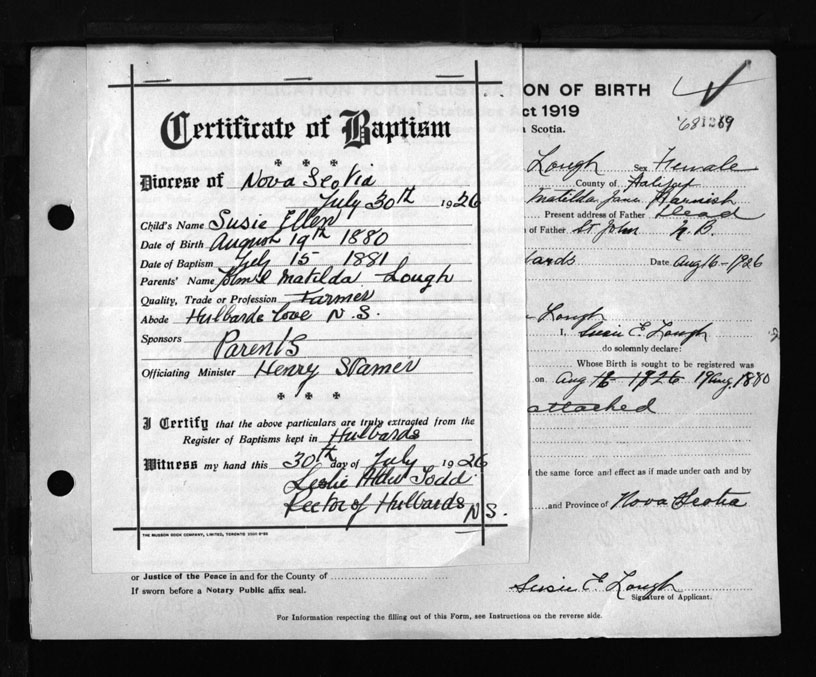 ON OF BIRTH
ct 1919
a Scotia.
Certificate of Baptism
Diocese of Nova Scotia
July 30th 1926
Child's Name Susie Ellen
Date of Birth August 19th 1880
Date of Baptism July 15 1881
Parents' Name Matilda Lough
Quality, Trade or Profession Farmer
Abode Hubbards Cove N.S.
Sponsors Parents
Officiating Minister Henry Stamer
I Certify that the above particulars are truly extracted from the
Register of Baptisms kept in Hubbards
Witness my hand this 30th day of July 1926
Leslie Todd
Rector of Hubbards N.S.
THE MUSSON BOOK COMPANY, LIMITED, TORONTO
Lough Sex Female
County of Halifax
Matilda Jane Harnish
Present address of Father Dead
n of Father St. John N.B.
Date Aug 16-1926
Lough
I, Susie E. Lough
do solemnly declare:
Whose Birth is sought to be registered was
on Aug 16-1926 19 Aug. 1880
attached
f the same force and effect as if made under oath and by
and Province of Nova Scotia
or Justice of the Peace in and for the County of
If sworn before a Notary Public affix seal.
Susie E. Lough
Signature of Applicant.
For Information respecting the filling out of this Form, see Instructions on the reverse side.